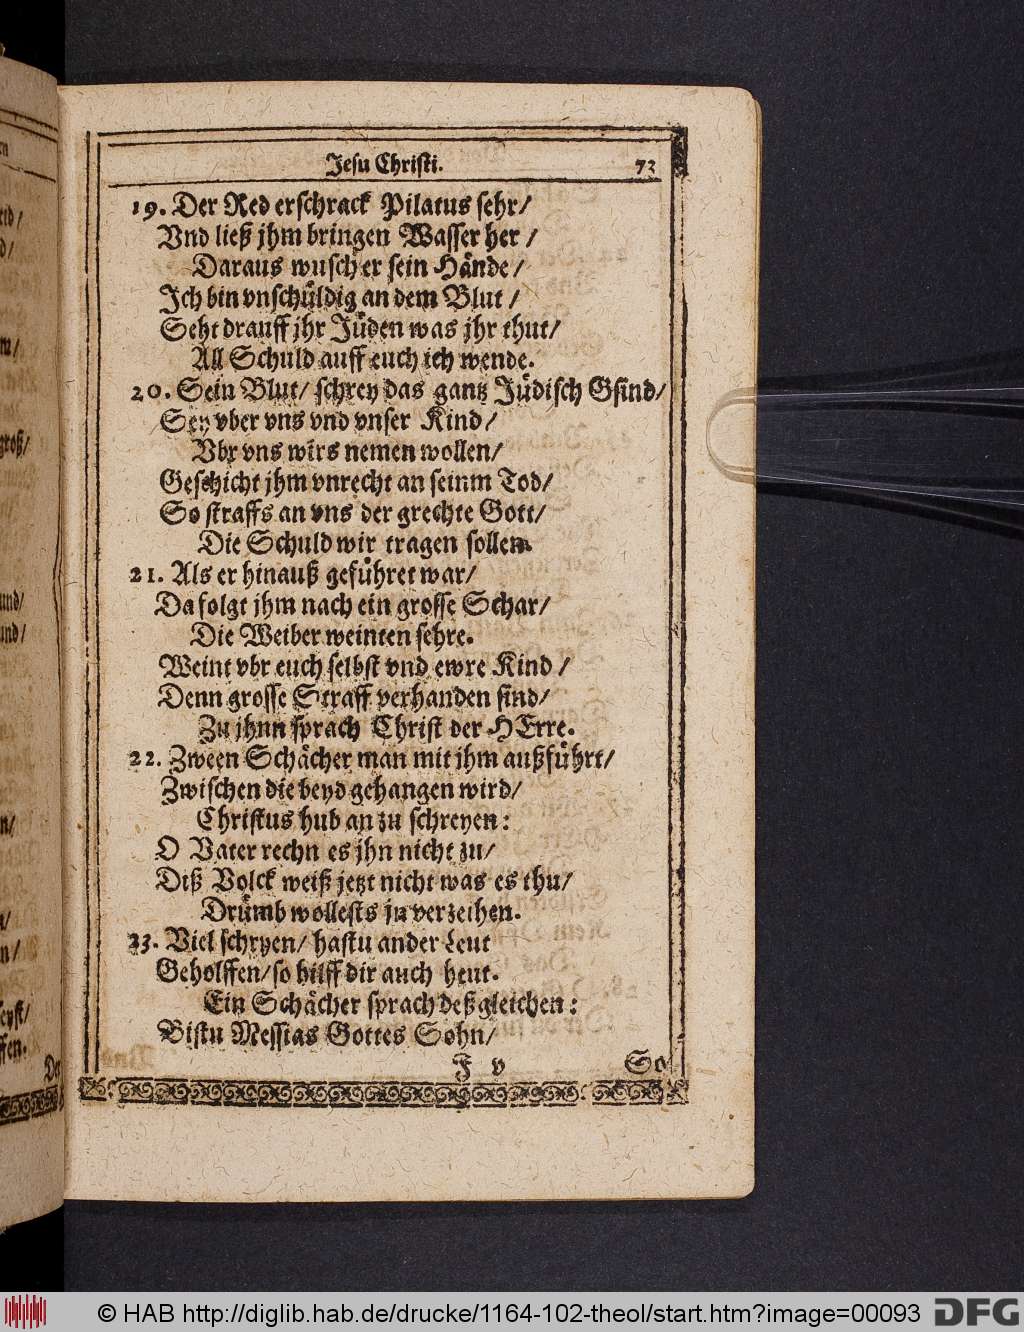 Jesu Christi. 72
19. Der Red erschrack Pilatus sehr/
Vnd ließ jhm bringen Wasser her /
Daraus wusch er sein Hände /
Ich bin vnschüldig an dem Blut /
Seht drauff jhr Jüden was jhr thut/
All Schuld auff euch ich wende.
20. Sein Blut/ schrey das gantz Jüdisch Gsind/
Sey vber vns vnd vnser Kind/
Vbr vns wirs nemen wollen/
Geschicht jhm vnrecht an seinm Tod/
So straffs an vns der grechte Gott/
Die Schuld wir tragen sollen.
21. Als er hinauß geführet war/
Da folgt jhm nach ein grosse Schar/
Die Weiber weinten sehre.
Weint vbr euch selbst vnd ewre Kind /
Denn grosse Straff verhanden sind/
Zu jhnn sprach Christ der HErre.
22. Zween Schächer man mit jhm außführt/
Zwischen die beyd gehangen wird/
Christus hub an zu schreyen:
O Vater rechn es jhn nicht zu/
Diß Volck weiß jetzt nicht was es thu/
Drümb wollests jn verzeihen.
23. Viel schryen/ hastu ander Leut
Geholffen/ so hilff dir auch heut.
Ein Schächer sprach deßgleichen:
Bistu Messias Gottes Sohn/
J v So
groß/
und/
und/
ffen.
Der
© HAB http://diglib.hab.de/drucke/1164-102-theol/start.htm?image=00093 DFG